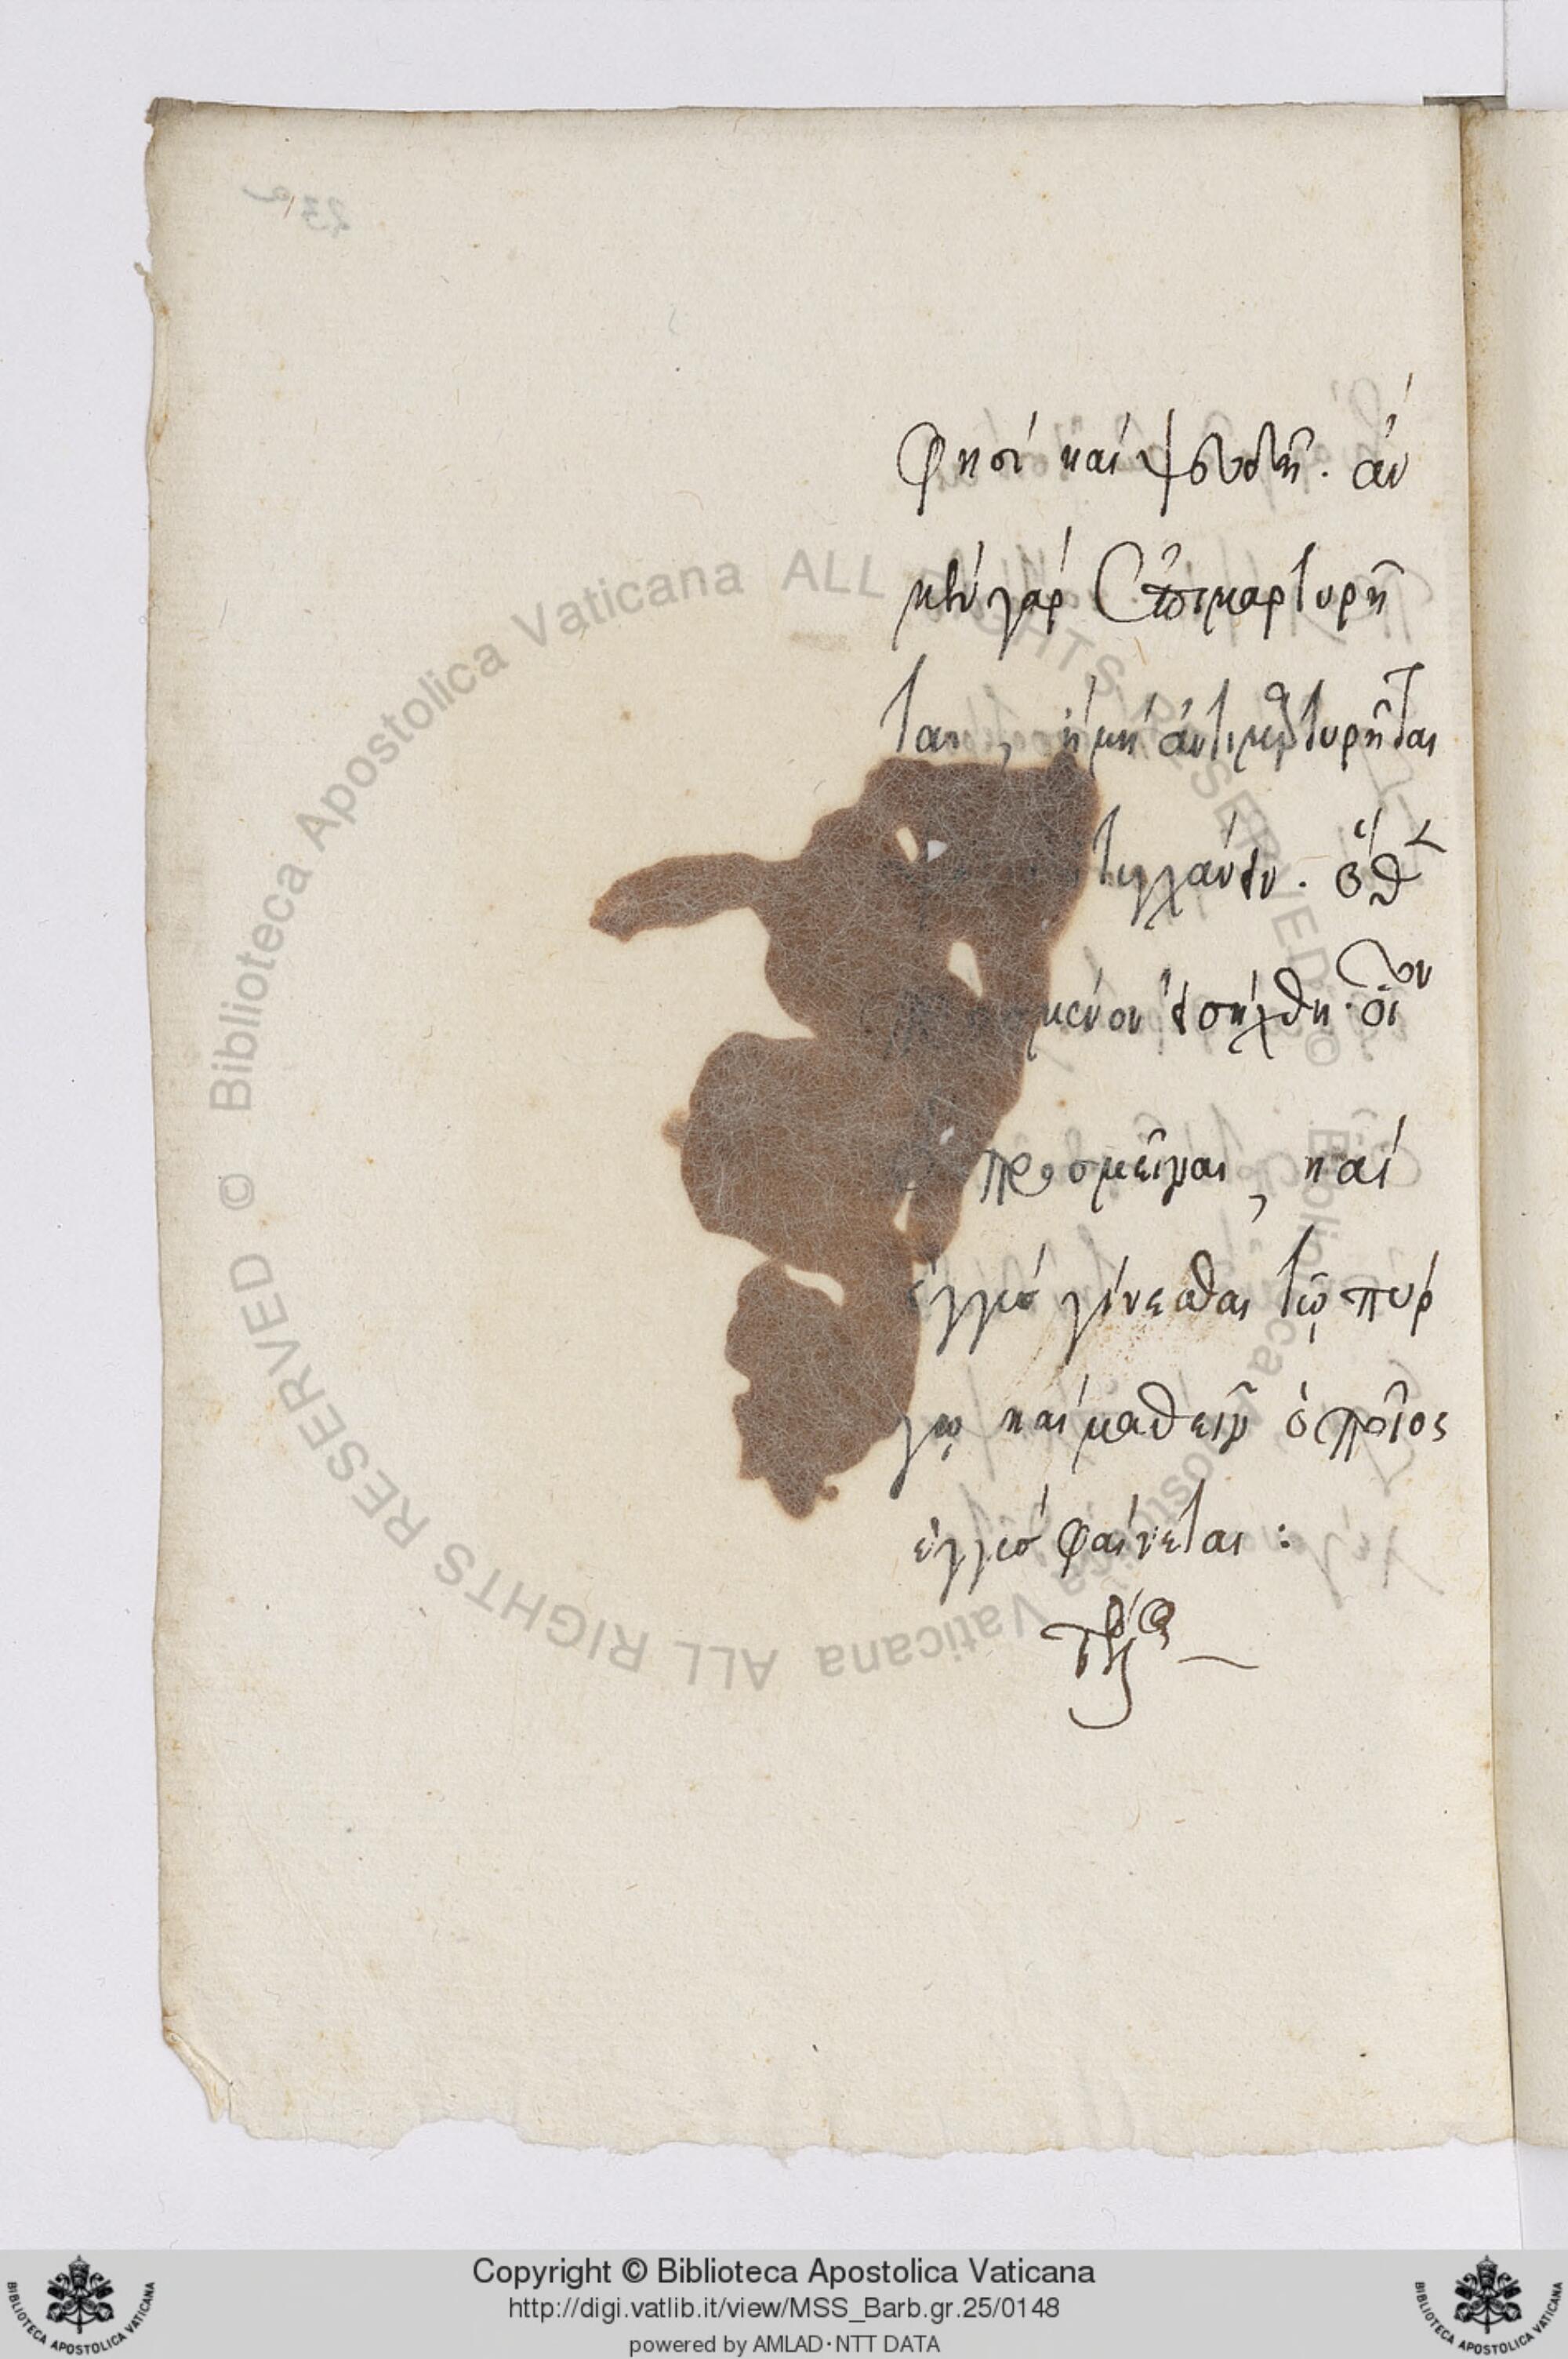 23a
φησί καὶ ψευδῆ. ἂν
μὲν γὰρ ἐπιμαρτυρῆ
ται, ἢ μὴ ἀντιμαρτυρῆται
τυγχάνειν. ὅθεν
μενον εἰσήχθη. οἷον
προσμεῖναι, καὶ
ἐγγὺς γίνεσθαι τῷ πύρ
γῳ καὶ μαθεῖν ὁποῖος
ἐγγὺς φαίνεται:
Biblioteca Apostolica Vaticana ALL RIGHTS RESERVED ©
Biblioteca Apostolica Vaticana ALL RIGHTS RESERVED ©
Copyright © Biblioteca Apostolica Vaticana
http://digi.vatlib.it/view/MSS_Barb.gr.25/0148
powered by AMLAD·NTT DATA
BIBLIOTECA APOSTOLICA VATICANA
BIBLIOTECA APOSTOLICA VATICANA